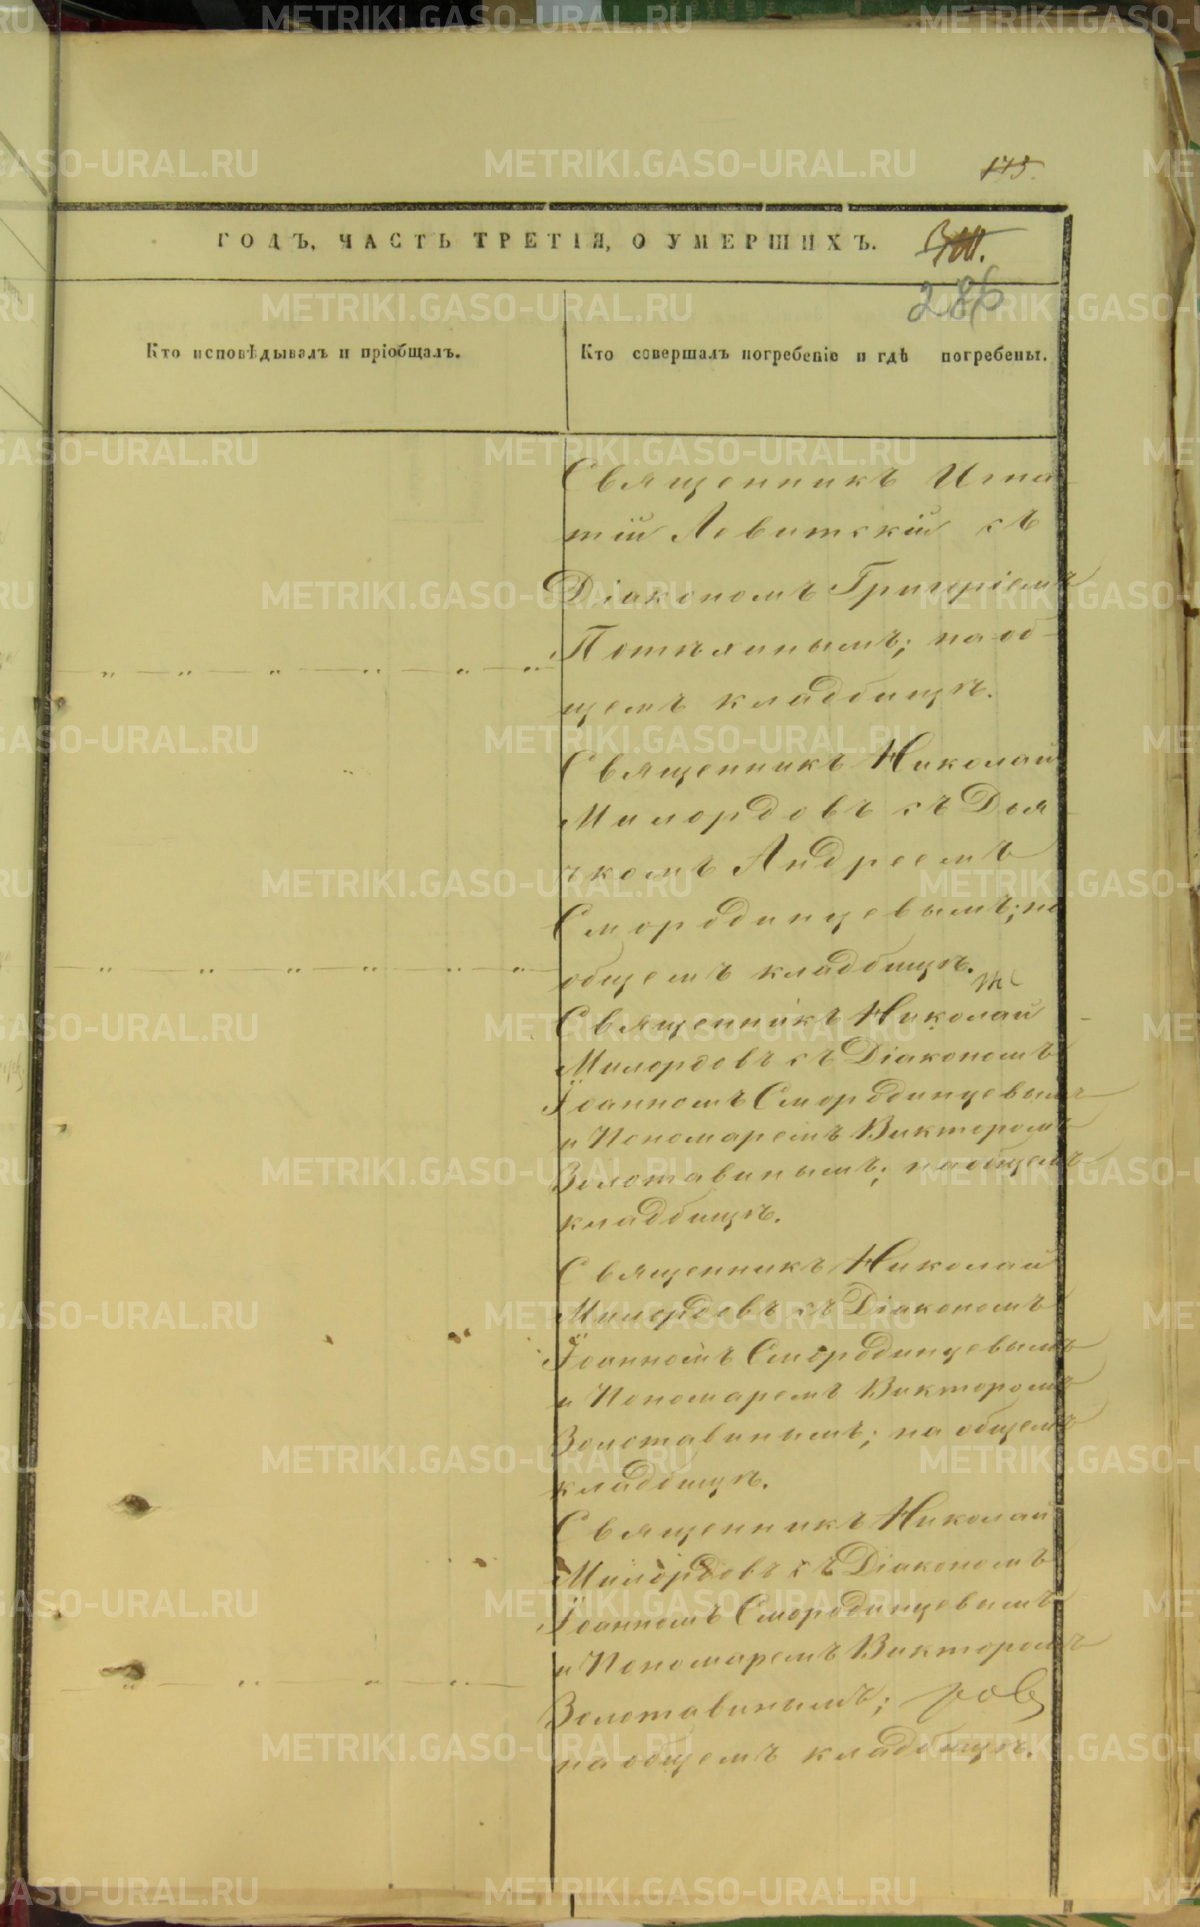 175.
ГОДЪ, ЧАСТЬ ТРЕТІЯ, О УМЕРШИХЪ.
286
Кто исповѣдывалъ и пріобщалъ.
Кто совершалъ погребеніе и гдѣ погребены.
Священникъ Игна
тій Левитскій съ
Діакономъ Григоріемъ
; на об-
щемъ кладбищѣ.
Священникъ Николай
Милордовъ съ Дья
чкомъ Андреемъ
Смородинцевымъ; на
общемъ кладбищѣ.
Священникъ Николай
Милордовъ съ Діакономъ
Іоанномъ Смородинцевымъ
и Пономаремъ Викторомъ
Золотавинымъ; на общемъ
кладбищѣ.
Священникъ Николай
Милордовъ съ Діакономъ
Іоанномъ Смородинцевымъ
и Пономаремъ Викторомъ
Золотавинымъ; на общемъ
кладбищѣ.
Священникъ Николай
Милордовъ съ Діакономъ
Іоанномъ Смородинцевымъ
и Пономаремъ Викторомъ
Золотавинымъ;
на общемъ кладбищѣ.
METRIKI.GASO-URAL.RU